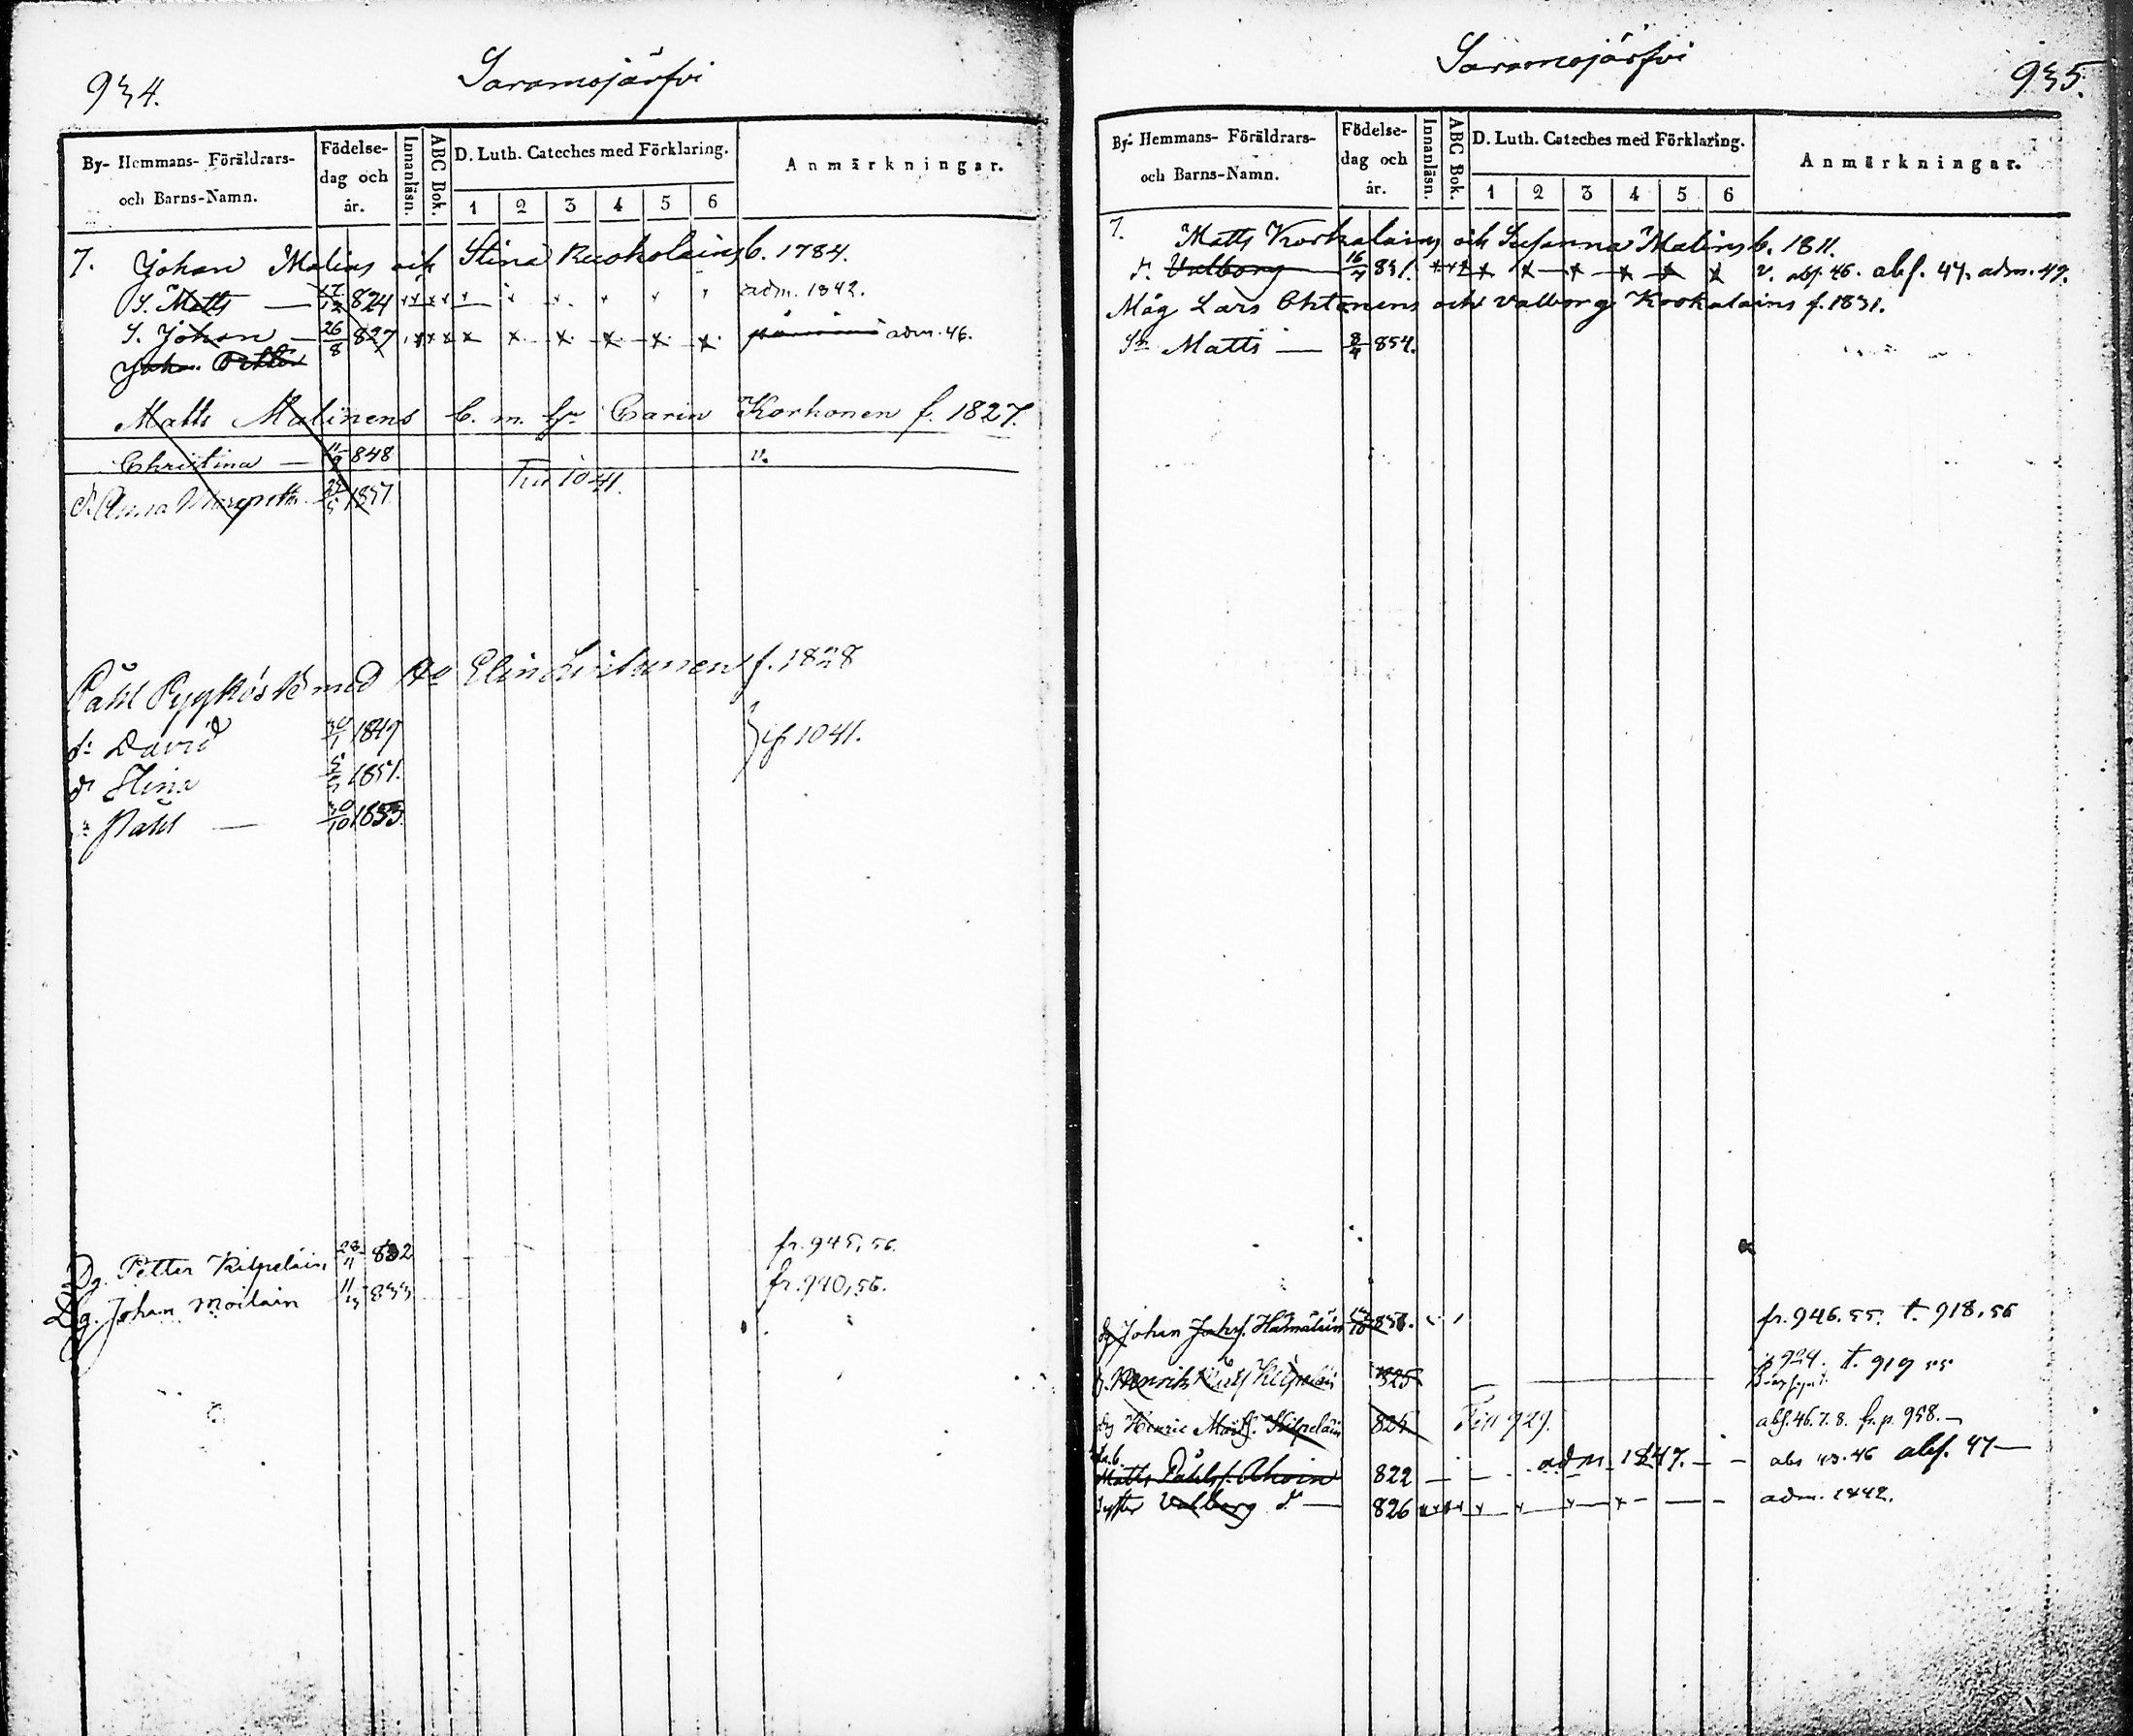 934.
Saramojärfvi
By- Hemmans- Föräldrars- och Barns-Namn.
Födelse- dag och år.
Innanläsn.
ABC Bok.
D. Luth. Cateches med Förklaring.
1 2 3 4 5 6
Anmärkningar.
7. Johan Malins och Stina Ruokolains b. 1784.
S. Matts — 17/12 824 adm. 1842.
S. Johan — 26/8 827 adm. 46.
Johan Petter
Matts Malinens b. m. hu Carin Korhonen f. 1827.
Christina — 11/9 848 v.
d. Anna Margreth 1851 Till 1041.
Påhl Pygkös Bo med Elin f. 1828
s: David 30/1 1849 1041.
dr Stina 1851.
s: Påhl — 30/10 1853.
Dg. Petter Kilpeläin 832 fr. 945, 56.
Dg. Johan Moilain 11/3 833 fr. 940, 56.
Saramojärfvi
935.
By- Hemmans- Föräldrars- och Barns-Namn.
Födelse- dag och år.
Innanläsn.
ABC Bok.
D. Luth. Cateches med Förklaring.
1 2 3 4 5 6
Anmärkningar.
7. Matts Korkalains och Susanna Malins b. 1811.
d. Valborg 16/7 831. v. abs. 46. abs. 47. adm. 49.
Måg Lars Ohtonens och Valborg Korkalains f. 1831.
Sn Matts — 8/4 854.
dg Johan fr. 946. 55. t. 918. 56
Henrik 825 924. t. 919 55
dg Henric Matts. Kilpeläin 824 Till 929. abs. 46. 7. 8. fr. p. 958. —
Matts Påhls. Ahoin 822 — adm. 1847. — abs 45. 46 abs. 47 —
syster Valborg d — 826 adm. 1842.